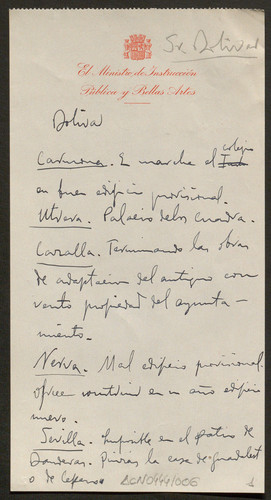 Sr. Bolivar
El Ministro de Instrucción
Pública y Bellas Artes
Bolivar
Carmona. En marcha el colegio
en buen edificio provisional.
Utrera. Palacio de los Cuadra.
Cazalla. Terminando las obras
de adaptacion del antiguo con
vento propiedad del ayunta-
miento.
Nerva. Mal edificio provisional.
ofrece construir en un año edificio
nuevo.
Sevilla. Imposible en el patio de
Banderas. la casa de Guadalest
o de